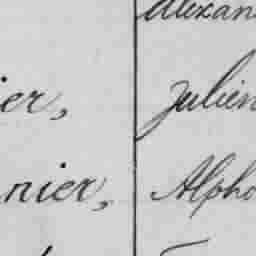 Alexan
ier, Julien
nier, Alpho